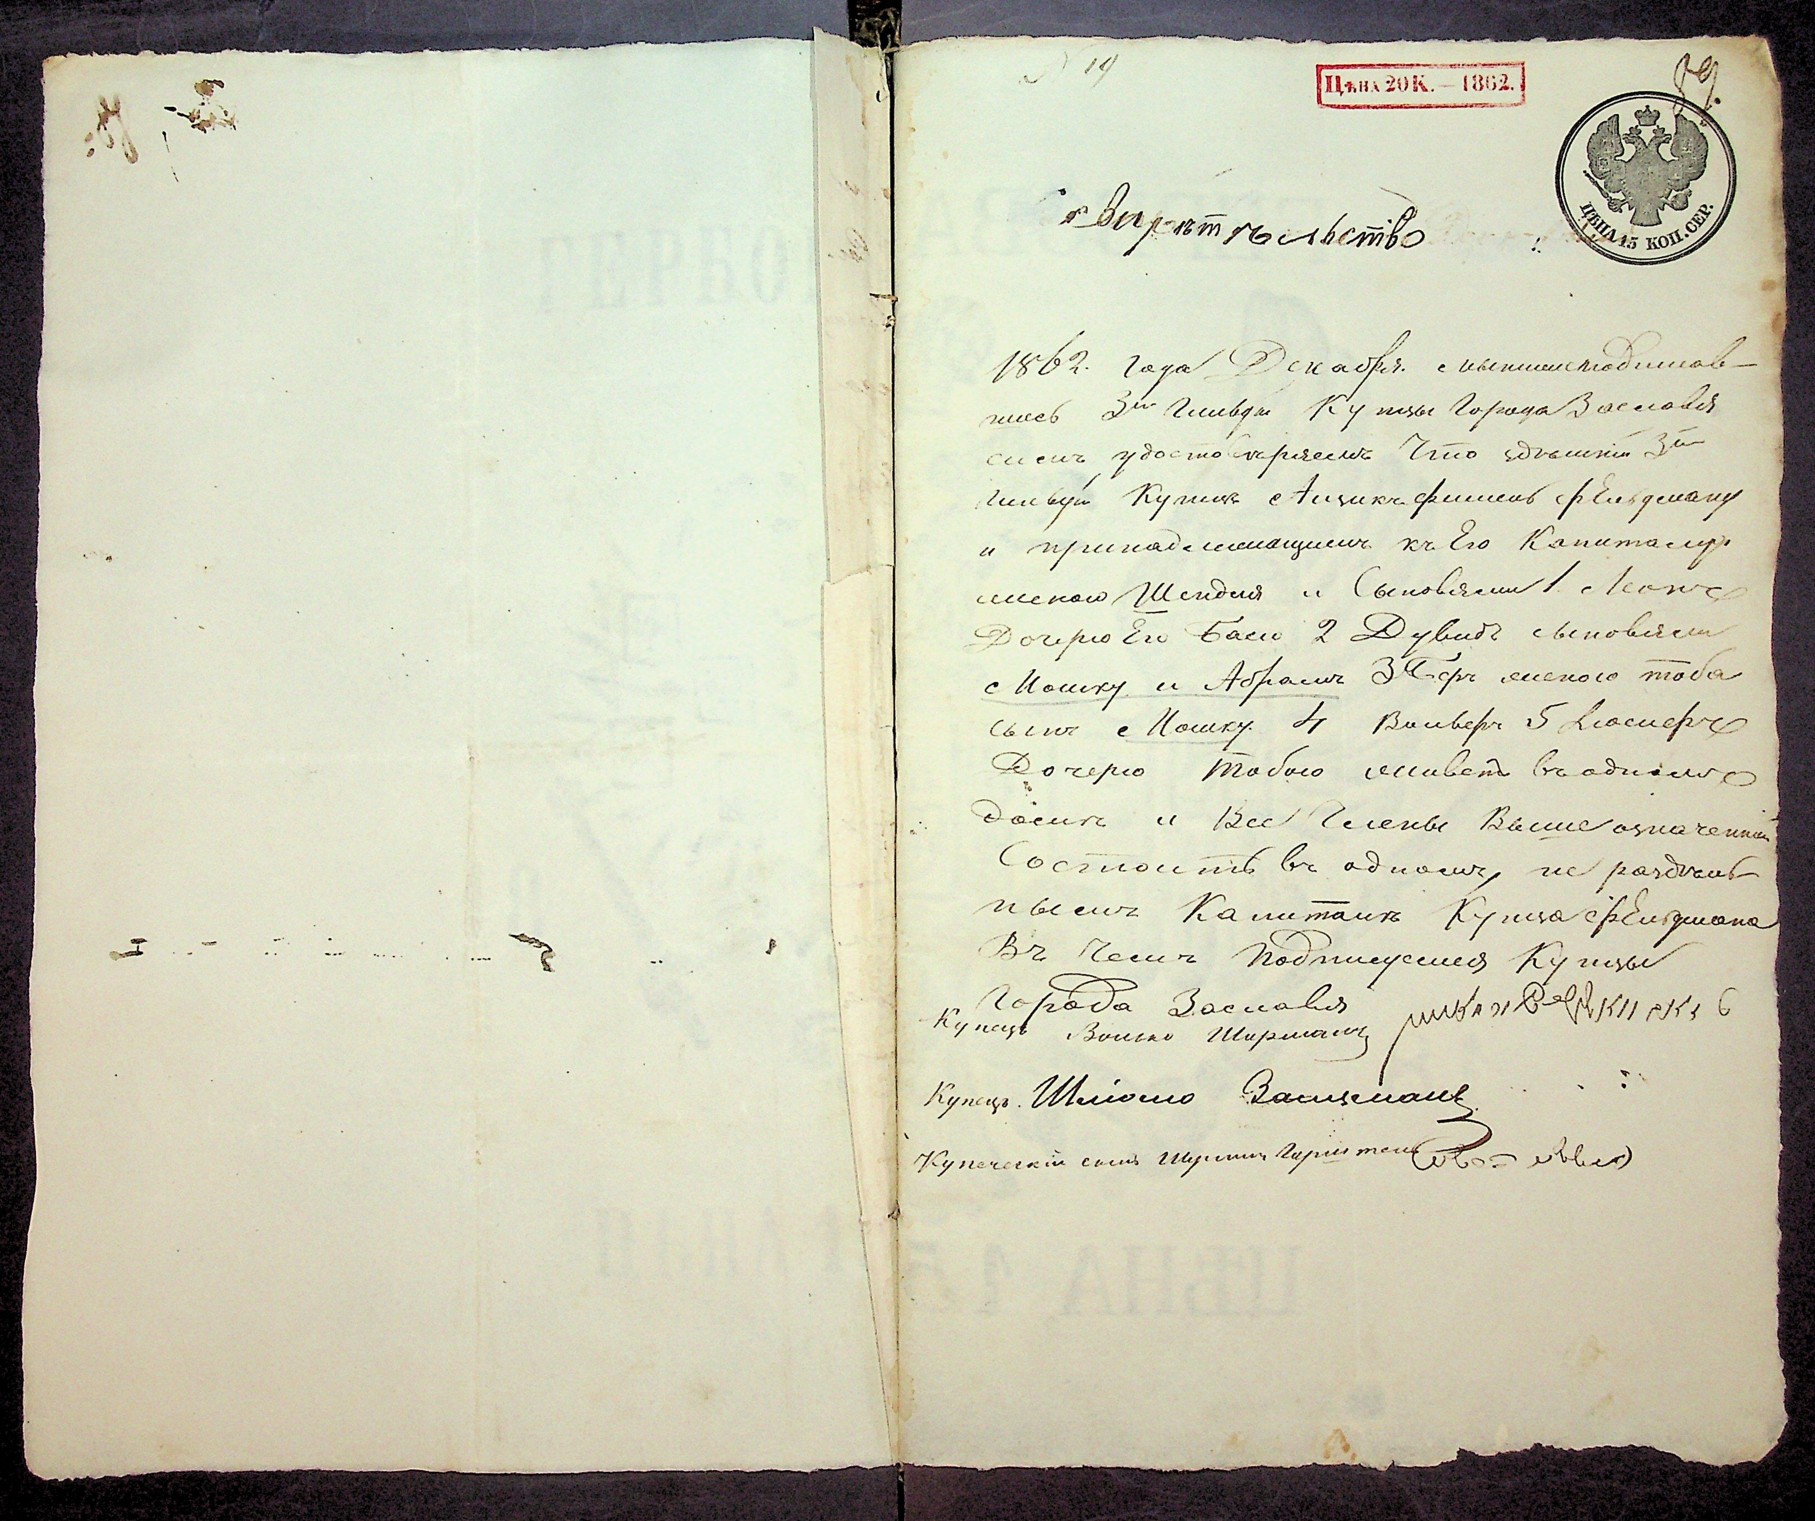 № 19
Цѣна 20 К. — 1862.
89.
ЦѢНА 15 КОП. СЕР.
Свидѣтельство
1862. года Декабря мы нижеподписав-
шесь 3й Гильдіи Купцы Города Заславля
симъ удостоверяемъ Что здѣшній 3й
Гильдіи Купецъ Айзикъ Фишель Фельдману
и принадлежащимъ къ Его Капиталу
женою Шендля и Сыновями 1
Дочерю Его Басю 2 Дувидъ сыновями
Мошку и Абрамъ 3 Беръ женою тоба
сынъ Мошку. 4 Вольфъ 5
Дочерю тобою живетъ въ одномъ
домѣ и Все Члены Выше означенніи
Состоитъ въ одномъ не раздѣль-
нымъ Капиталѣ Купца Фельдмана
Въ Чемъ подписуемся Купцы
Города Заславля
Купецъ Волько Шерманъ
Купецъ Шліомо Зальцманъ
Купеческій сынъ